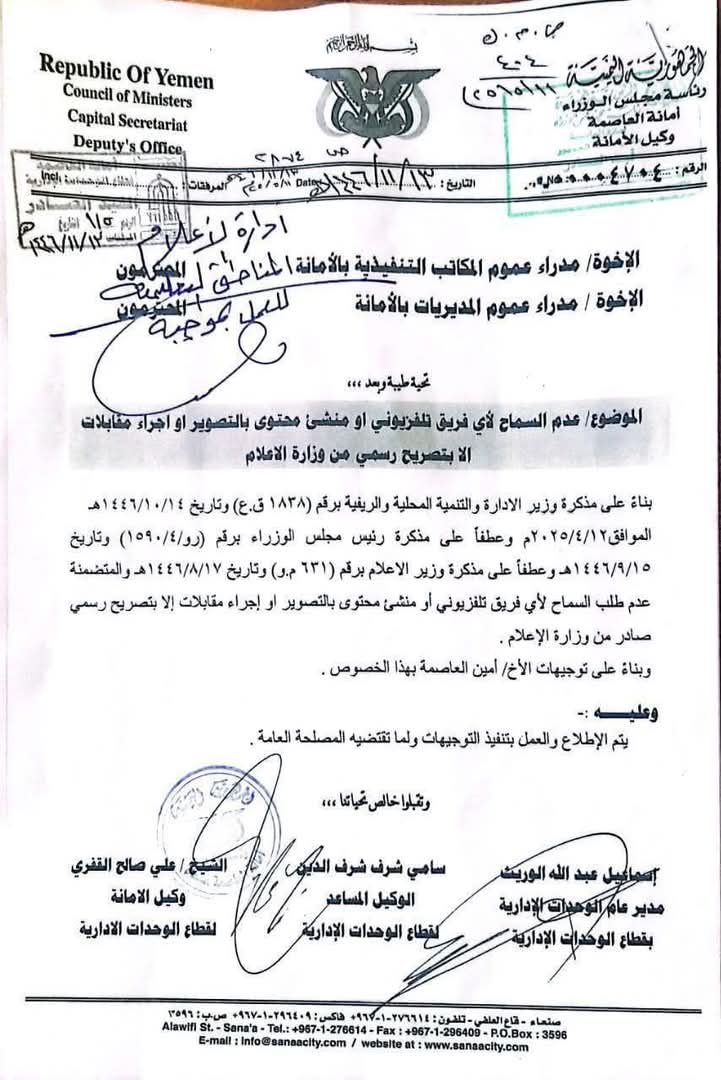 بسم الله الرحمن الرحيم
Republic Of Yemen
Council of Ministers
Capital Secretariat
Deputy's Office
الجمهورية اليمنية
رئاسة مجلس الوزراء
أمانة العاصمة
وكيل الأمانة
الرقم :
التاريخ : ١٤٤٦/١١/١٣
Date:
المرفقات :
Incl
ادارة الاعلام
للعمل بموجبه
الإخوة/ مدراء عموم المكاتب التنفيذية بالأمانة المحترمون
الإخوة / مدراء عموم المديريات بالأمانة المحترمون
تحية طيبة وبعد ،،،
الموضوع/ عدم السماح لأي فريق تلفزيوني او منشئ محتوى بالتصوير او اجراء مقابلات
الا بتصريح رسمي من وزارة الاعلام
بناءً على مذكرة وزير الادارة والتنمية المحلية والريفية برقم (١٨٣٨ ق.ع) وتاريخ ١٤٤٦/١٠/١٤هـ
الموافق٢٠٢٥/٤/١٢م وعطفاً على مذكرة رئيس مجلس الوزراء برقم (رو/١٥٩٠/٤) وتاريخ
١٤٤٦/٩/١٥هـ وعطفاً على مذكرة وزير الاعلام برقم (٦٣١ م.و) وتاريخ ١٤٤٦/٨/١٧هـ والمتضمنة
عدم طلب السماح لأي فريق تلفزيوني أو منشئ محتوى بالتصوير او إجراء مقابلات إلا بتصريح رسمي
صادر من وزارة الإعلام .
وبناءً على توجيهات الأخ/ أمين العاصمة بهذا الخصوص .
وعليـــه :-
يتم الإطلاع والعمل بتنفيذ التوجيهات ولما تقتضيه المصلحة العامة .
وتقبلوا خالص تحياتنا ،،،
إسماعيل عبد الله الوريث
مدير عام الوحدات الإدارية
بقطاع الوحدات الإدارية
سامي شرف شرف الدين
الوكيل المساعد
لقطاع الوحدات الإدارية
الشيخ / علي صالح القفري
وكيل الامانة
لقطاع الوحدات الادارية
صنعاء - قاع العلفي - تلفون : ٢٧٦٦١٤-١-٩٦٧+ فاكس : ٢٩٦٤٠٩-١-٩٦٧+ ص.ب : ٣٥٩٦
Alawifi St. - Sana'a - Tel.: +967-1-276614 - Fax : +967-1-296409 - P.O.Box : 3596
E-mail : info@sanaacity.com / website at : www.sanaacity.com